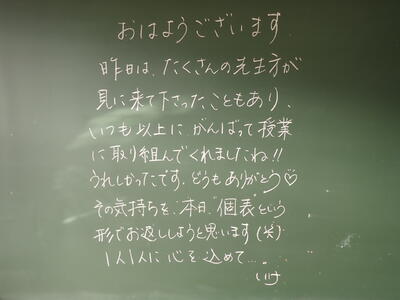 おはようございます.
昨日は、たくさんの先生方が
見に来て下さったこともあり、
いつも以上に、がんばって授業
に取り組んでくれましたね!!
うれしかったです。どうもありがとう♡
その気持ちを、本日、"個表"という
形でお返ししようと思います(笑)
1人1人に心を込めて....